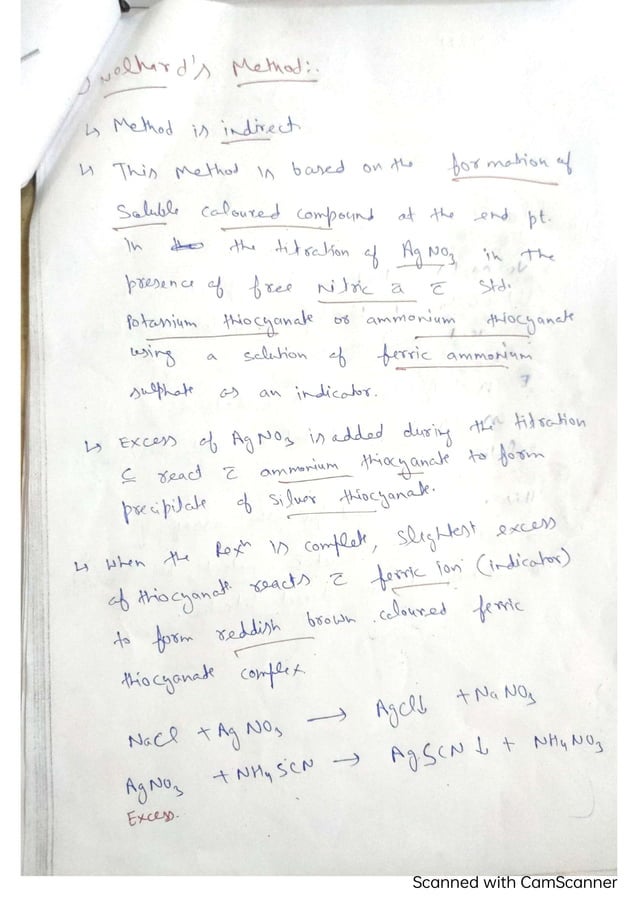 Volhard's Method:.
↳ Method is indirect
↳ This Method is based on the formation of
Soluble coloured compound at the end pt.
In the titration of AgNO3 in the
presence of free nitric a c̄ Std.
Potassium thiocyanate or ammonium thiocyanate
using a solution of ferric ammonium
sulphate as an indicator.
↳ Excess of AgNO3 is added during the titration
⊆ react c̄ ammonium thiocyanate to form
precipitate of silver thiocyanate.
↳ When the Rexn is complete, slightest excess
of thiocyanate reacts c̄ ferric ion (indicator)
to form reddish brown coloured ferric
thiocyanate complex
NaCl + AgNO3 → AgCl↓ + NaNO3
AgNO3 + NH4SCN → AgSCN↓ + NH4NO3
Excess.
Scanned with CamScanner